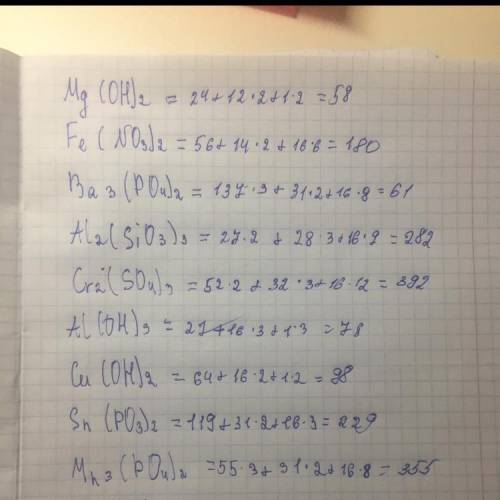 Mg(OH)2 = 24+12·2+1·2 = 58
Fe(NO3)2 = 56+14·2+16·6 = 180
Ba3(PO4)2 = 137·3+31·2+16·8 = 61
Al2(SiO3)3 = 27·2+28·3+16·9 = 282
Cr2(SO4)3 = 52·2+32·3+16·12 = 392
Al(OH)3 = 27+16·3+1·3 = 78
Cu(OH)2 = 64+16·2+1·2 = 98
Sn(PO3)2 = 119+31·2+16·3 = 229
Mn3(PO4)2 = 55·3+31·2+16·8 = 355